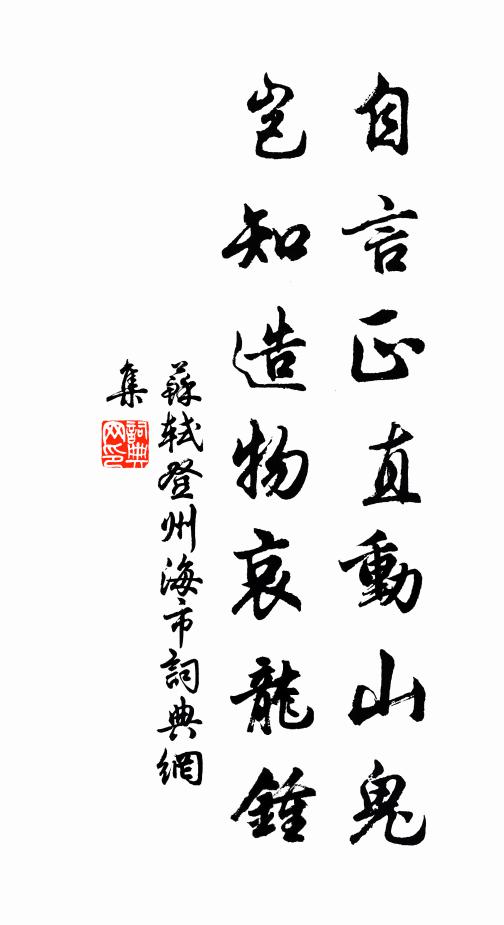 自言正直動山鬼
豈知造物哀龍鍾
蘇軾登州海市詞典網
集
詞典
网印